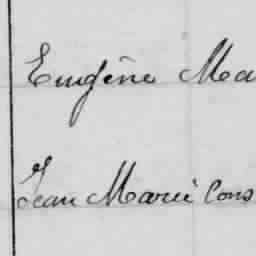 Eugène Ma
Jean Marie Cons